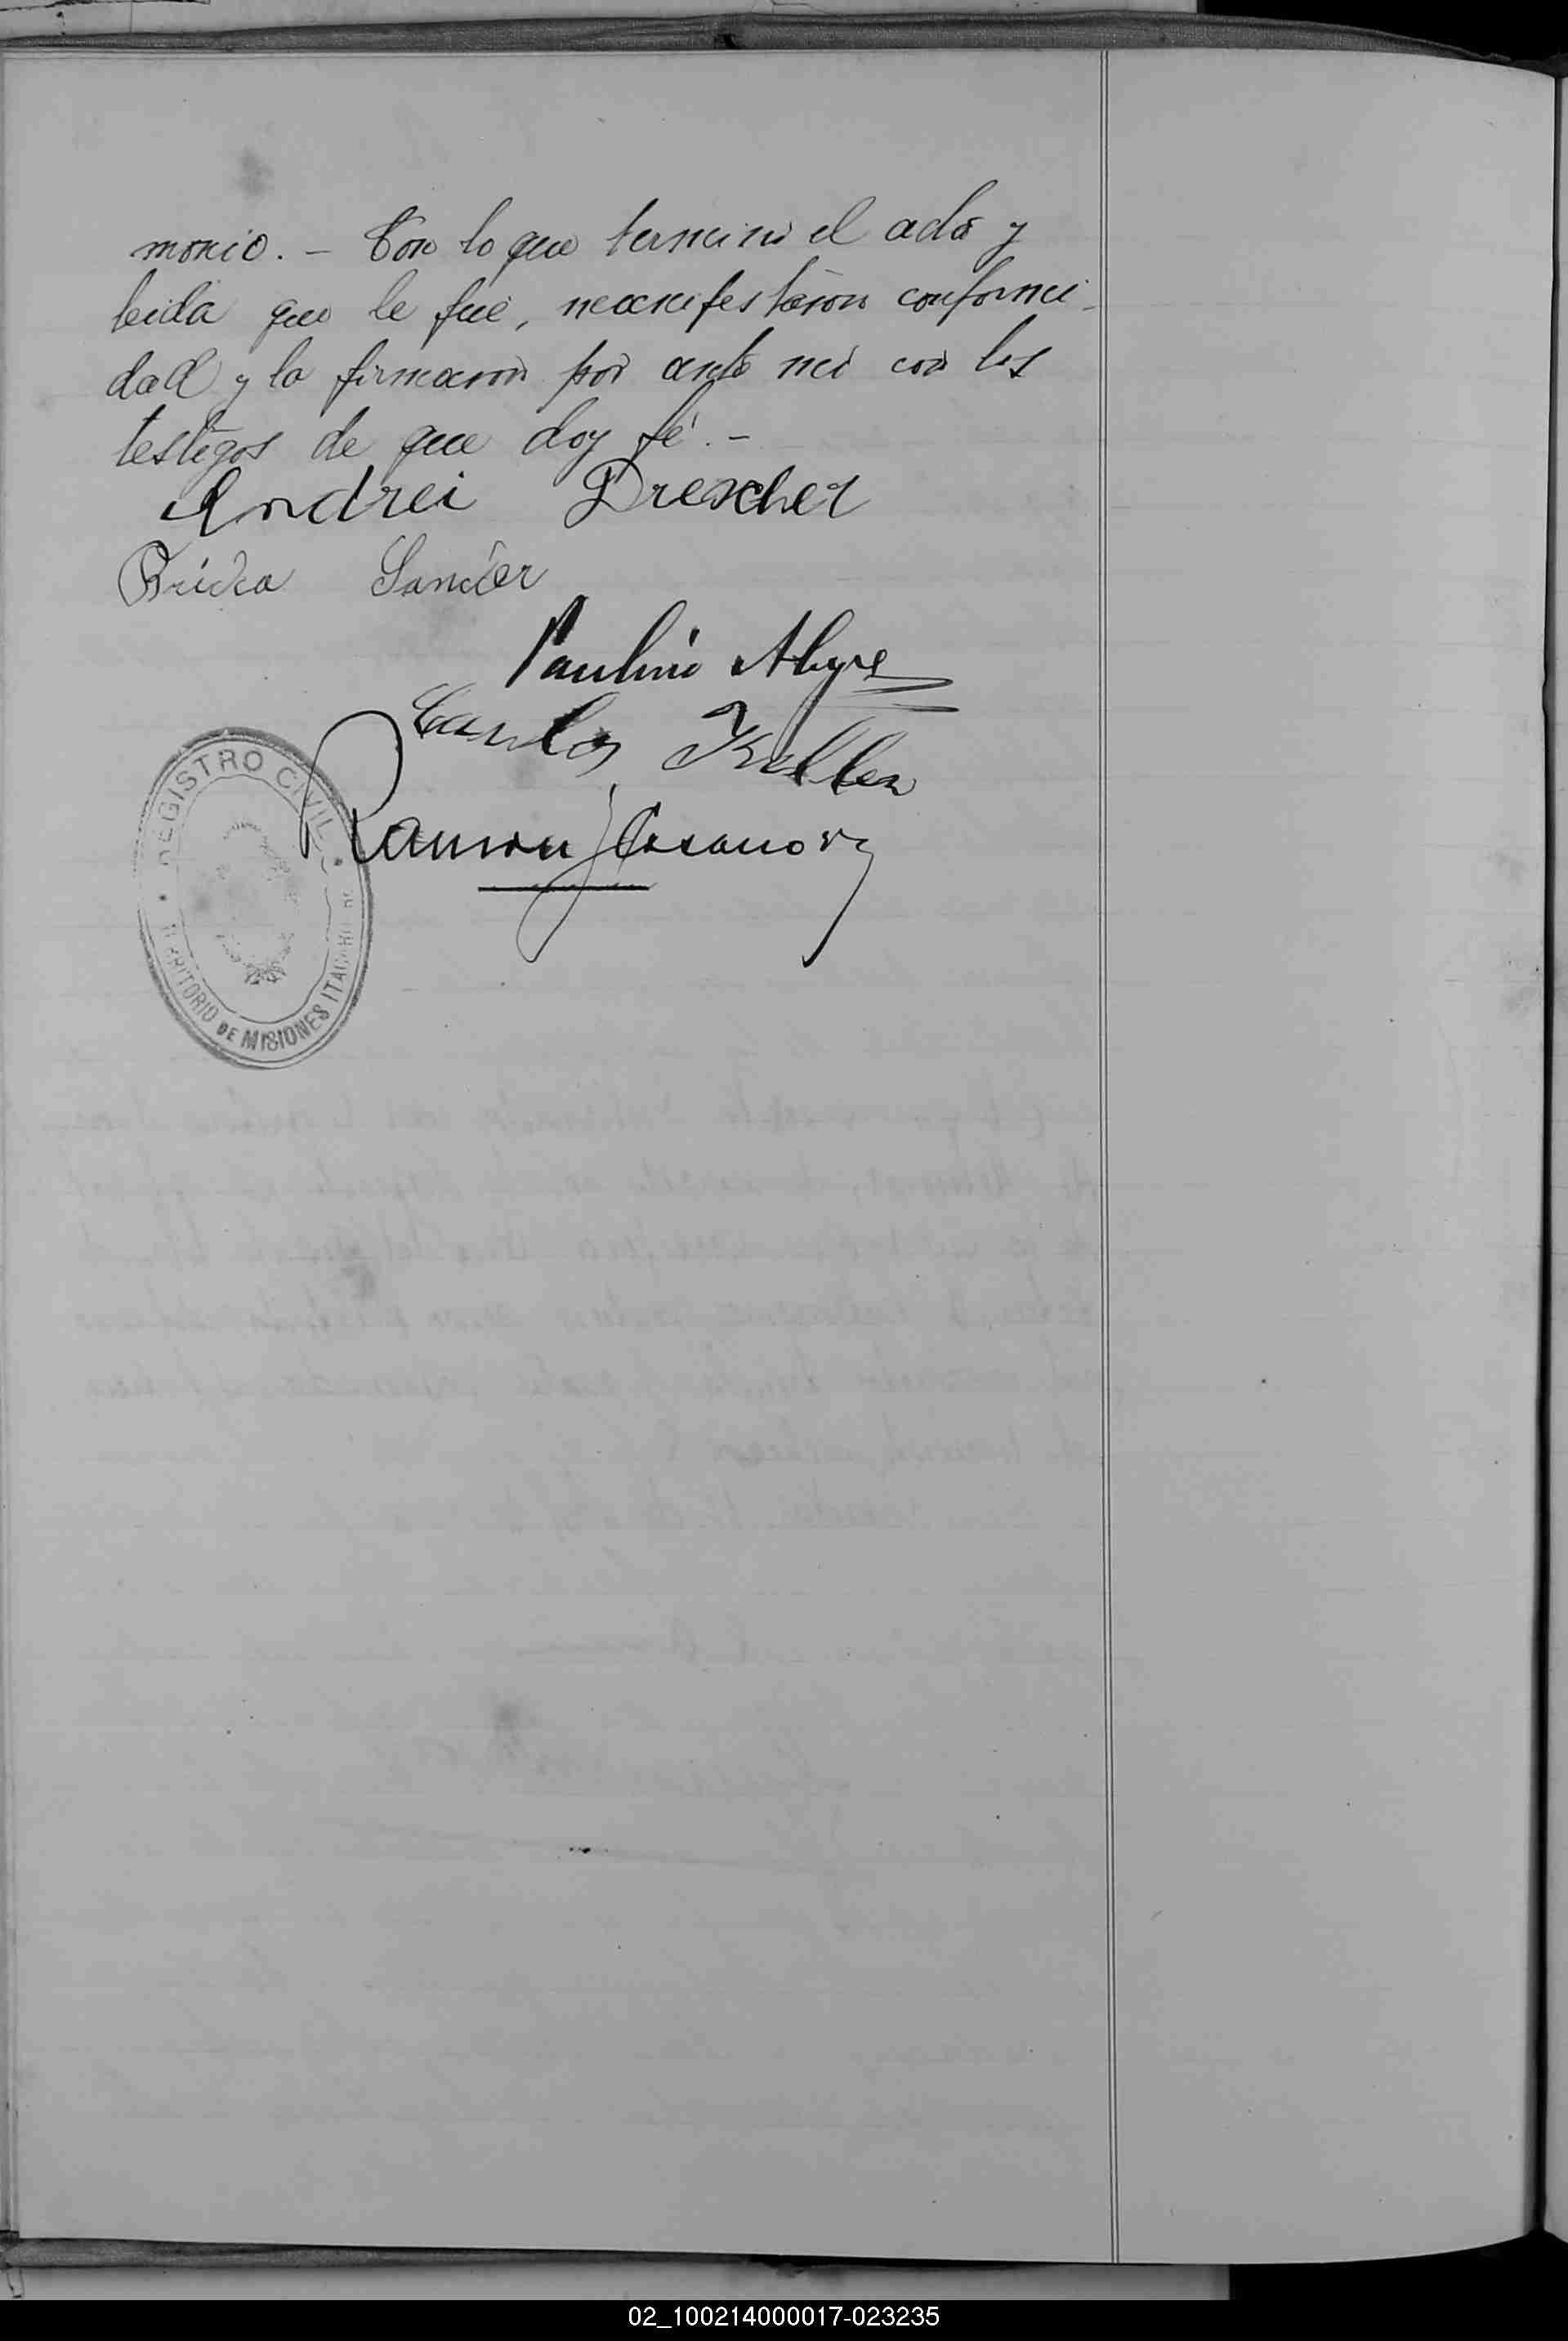 monio. – Con lo que terminó el acto y
leida que le fué, manifestaron conformi-
dad y la firmaron por ante mi con los
testigos de que doy fé. –
Andrei Drescher
Sander
Paulino Alegre
Carlos Keller
Ramon J Casanova
REGISTRO CIVIL
TERRITORIO DE MISIONES
02_100214000017-023235